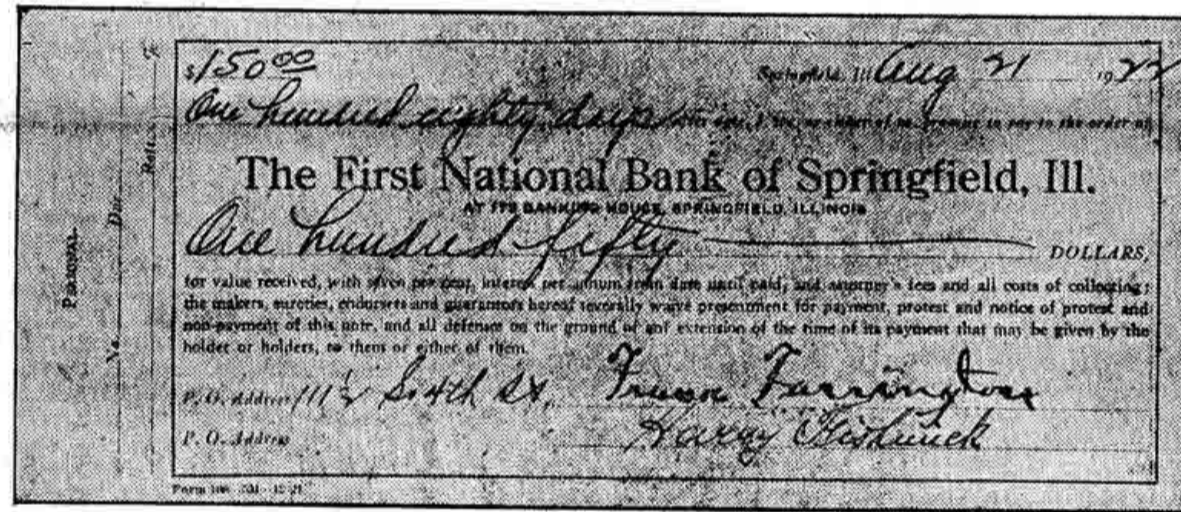 $150 00
Springfield, Ill. Aug 21 1922
One hundred eighty days after date, I, we, or either of us, promise to pay to the order of
The First National Bank of Springfield, Ill.
AT ITS BANKING HOUSE, SPRINGFIELD, ILLINOIS
One hundred fifty DOLLARS,
for value received, with seven per cent, interest per annum from date until paid, and attorney's fees and all costs of collecting;
the makers, sureties, endorsers and guarantors hereof severally waive presentment for payment, protest and notice of protest and
non-payment of this note, and all defenses on the ground of any extension of the time of its payment that may be given by the
holder or holders, to them or either of them.
P. O. Address 111½ S 4th St. Frank Farrington
P. O. Address Harry Fishwick
No. Due